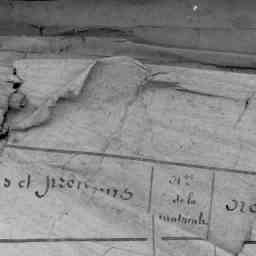 s et prénoms
N°
de la
matricule